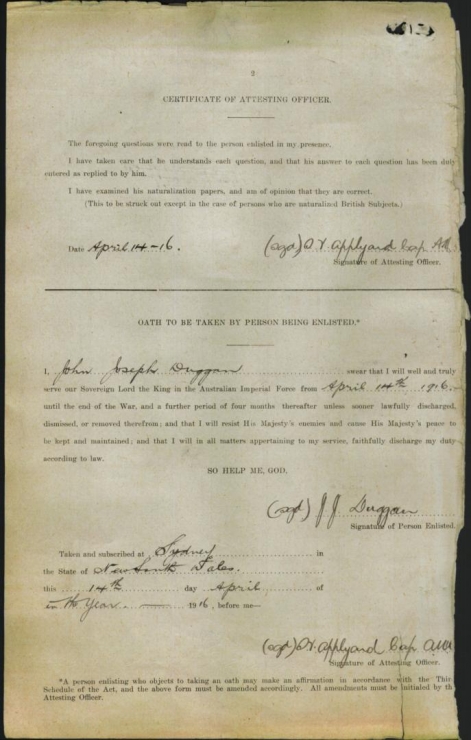 2
CERTIFICATE OF ATTESTING OFFICER.
The foregoing questions were read to the person enlisted in my presence.
I have taken care that he understands each question, and that his answer to each question has been duly
entered as replied to by him.
I have examined his naturalization papers, and am of opinion that they are correct.
(This to be struck out except in the case of persons who are naturalized British Subjects.)
Date April 14-16. (sgd) Applyard Cap
Signature of Attesting Officer.
OATH TO BE TAKEN BY PERSON BEING ENLISTED.*
I, John Joseph Duggan swear that I will well and truly
serve our Sovereign Lord the King in the Australian Imperial Force from April 14th 1916.
until the end of the War, and a further period of four months thereafter unless sooner lawfully discharged,
dismissed, or removed therefrom; and that I will resist His Majesty's enemies and cause His Majesty's peace to
be kept and maintained; and that I will in all matters appertaining to my service, faithfully discharge my duty
according to law.
SO HELP ME, GOD.
(sgd) J J. Duggan
Signature of Person Enlisted.
Taken and subscribed at Sydney in
the State of New South Wales.
this 14th day April of
in the Year. 1916, before me—
(sgd) Applyard Cap
Signature of Attesting Officer.
*A person enlisting who objects to taking an oath may make an affirmation in accordance with the Third
Schedule of the Act, and the above form must be amended accordingly. All amendments must be initialed by th
Attesting Officer.